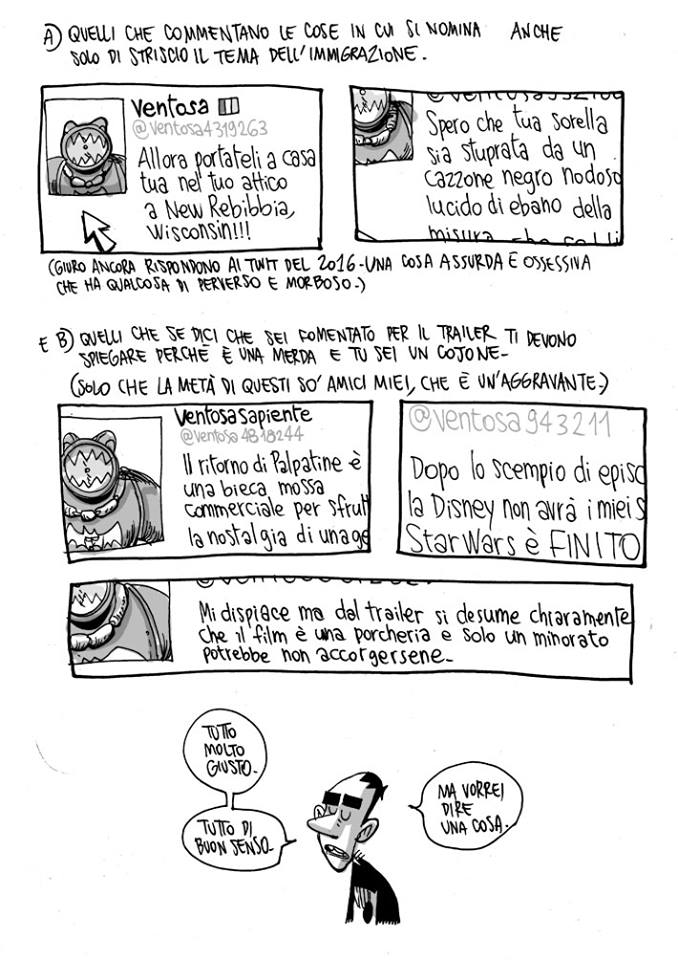 A) QUELLI CHE COMMENTANO LE COSE IN CUI SI NOMINA ANCHE
SOLO DI STRISCIO IL TEMA DELL'IMMIGRAZIONE.
Ventosa
@ventosa4319263
Allora portateli a casa
tua nel tuo attico
a New Rebibbia,
Wisconsin!!!
Spero che tua sorella
sia stuprata da un
cazzone negro nodoso
lucido di ebano della
misura che
(GIURO ANCORA RISPONDONO AI TWIT DEL 2016-UNA COSA ASSURDA E OSSESSIVA
CHE HA QUALCOSA DI PERVERSO E MORBOSO.)
E B) QUELLI CHE SE DICI CHE SEI FOMENTATO PER IL TRAILER TI DEVONO
SPIEGARE PERCHÈ È UNA MERDA E TU SEI UN COJONE-
(SOLO CHE LA METÀ DI QUESTI SO' AMICI MIEI, CHE È UN'AGGRAVANTE.)
Ventosasapiente
@ventosa4818244
Il ritorno di Palpatine è
una bieca mossa
commerciale per sfrutt
la nostalgia di una ge
@ventosa943211
Dopo lo scempio di episo
la Disney non avrà i miei s
Star Wars è FINITO
Mi dispiace ma dal trailer si desume chiaramente
che il film è una porcheria e solo un minorato
potrebbe non accorgersene-
TUTTO
MOLTO
GIUSTO.
TUTTO DI
BUON SENSO.
MA VORREI
DIRE
UNA COSA.